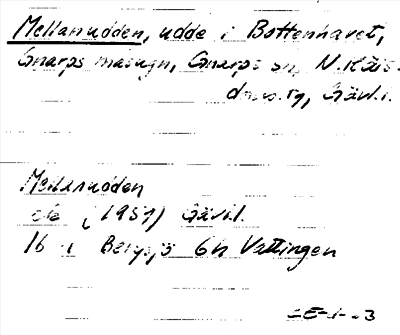 Mellanudden, udde i Bottenhavet,
Gnarps masugn, Gnarps sn, N. Häls.
Gävl.
Mellanudden
ek (1957) Gävl.
16 Bergsjö 6h Vattingen